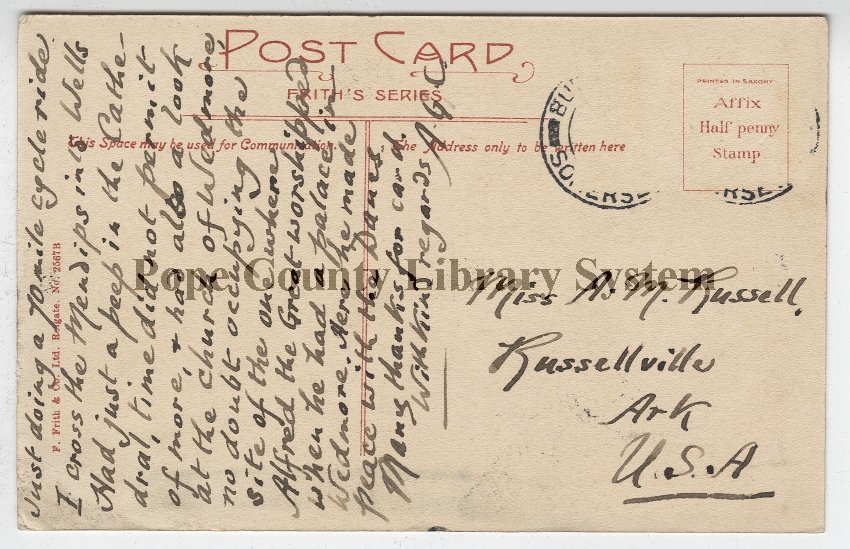 POST CARD
FRITH'S SERIES
This Space may be used for Communication.
The Address only to be written here
PRINTED IN SAXONY
Affix
Half penny
Stamp
F. Frith & Co. Ltd. Reigate. No. 2567B
Just doing a 70 mile cycle ride.
I cross the Mendips into Wells
Had just a peep in the Cathe-
dral, time did not permit
of more, & had also a look
at the church of Wedmore,
no doubt occupying the
site of the one where
Alfred the Great worshipped
when he had a palace in
Wedmore. Here he made
peace with the Danes.
Many thanks for card.
With kind regards A.G.C
Miss A. M. Russell,
Russellville
Ark
U.S.A
Pope County Library System